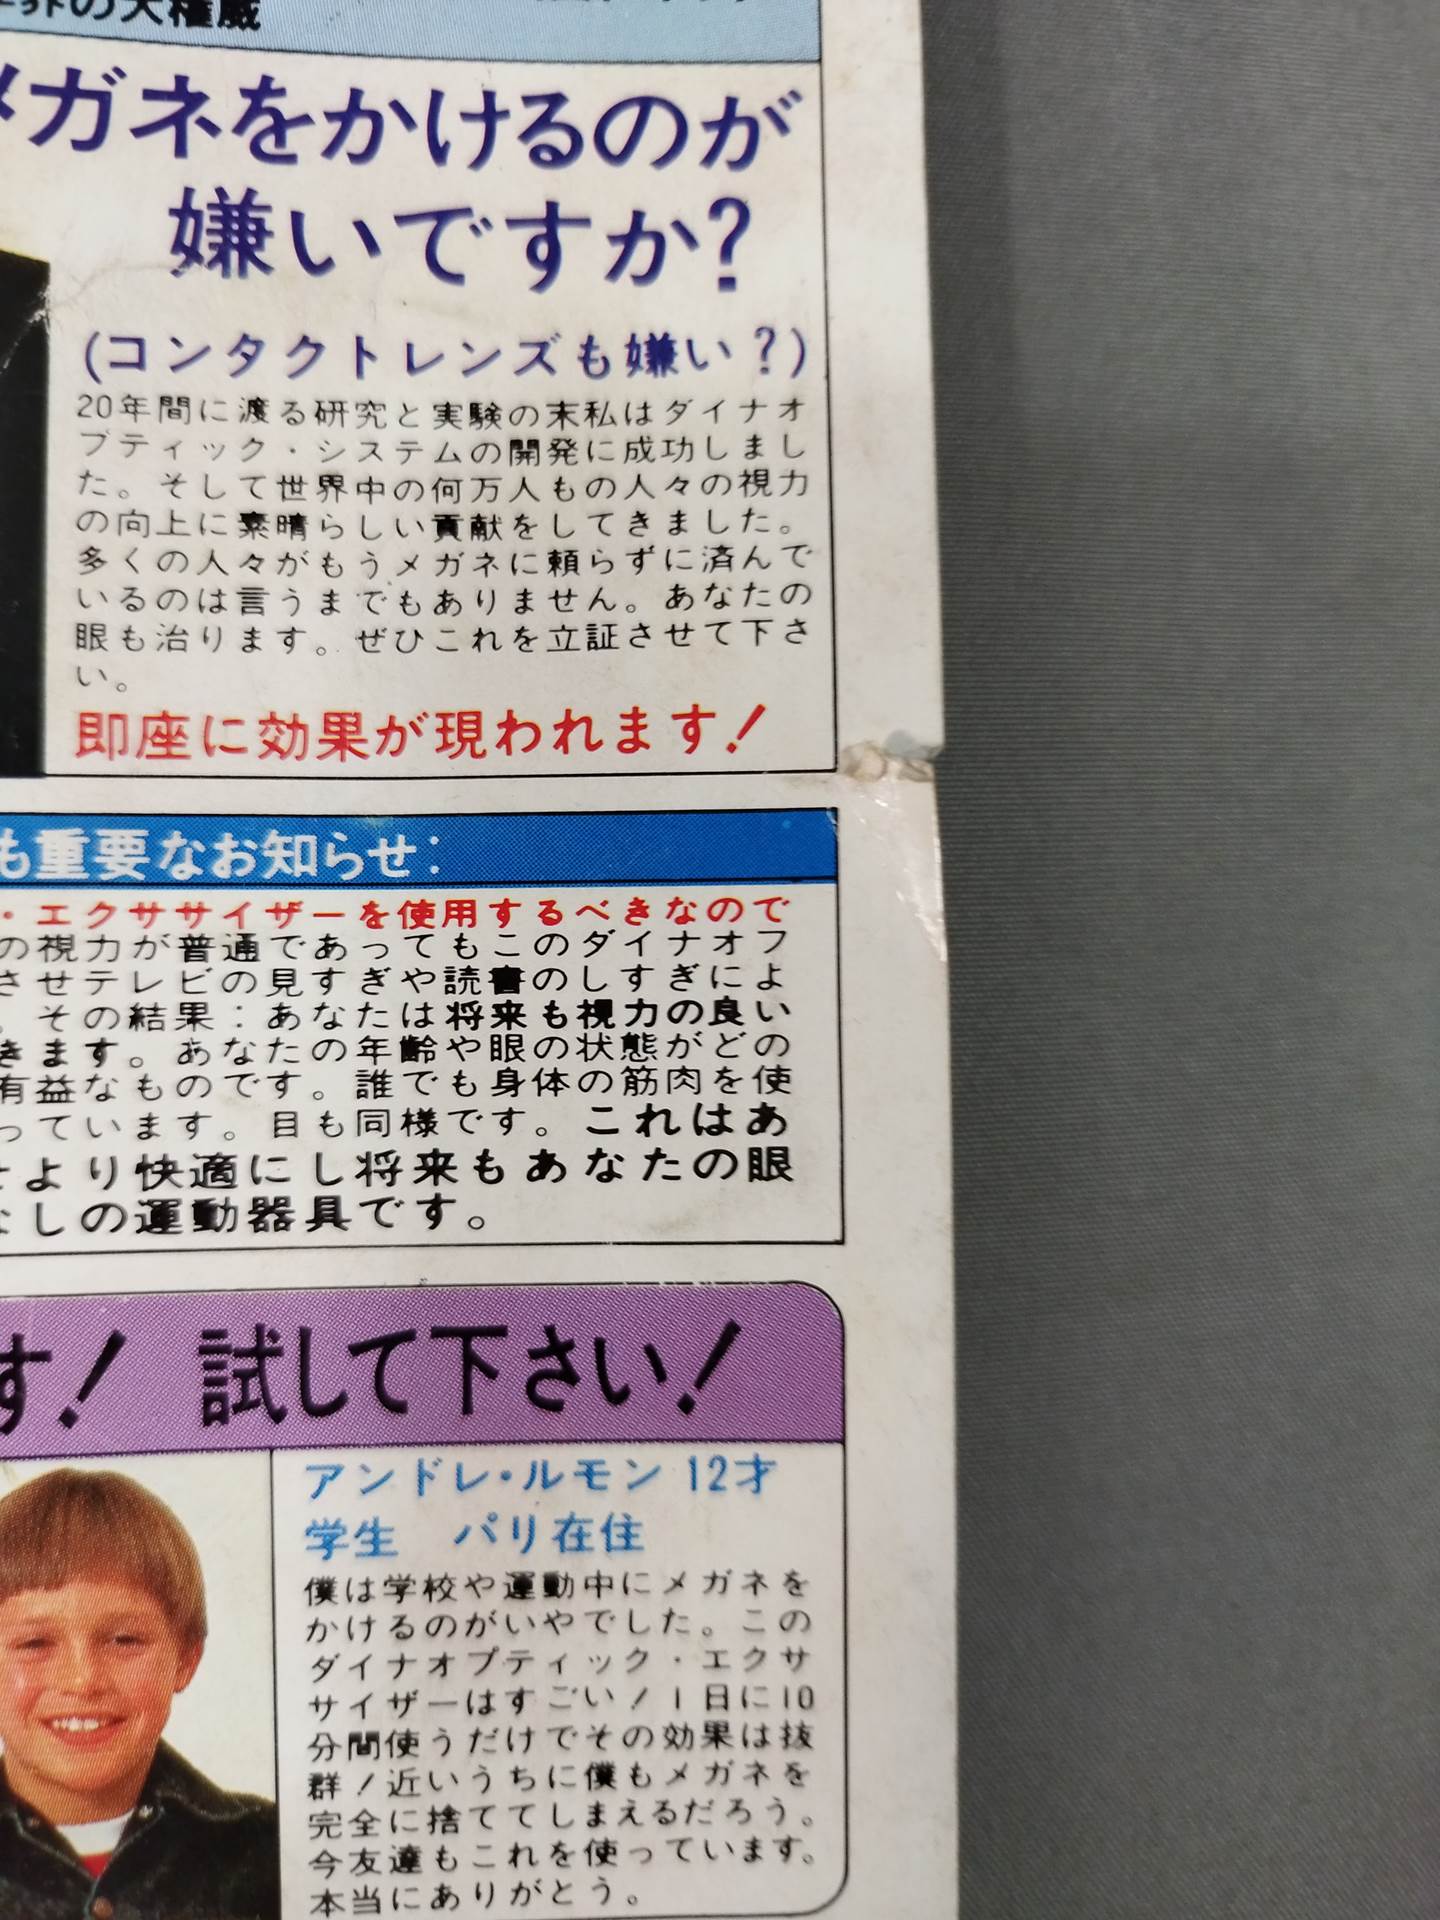 の大権威
メガネをかけるのが
嫌いですか?
(コンタクトレンズも嫌い?)
20年間に渡る研究と実験の末私はダイナオ
プティック・システムの開発に成功しまし
た。そして世界中の何万人もの人々の視力
の向上に素晴らしい貢献をしてきました。
多くの人々がもうメガネに頼らずに済んで
いるのは言うまでもありません。あなたの
眼も治ります。ぜひこれを立証させて下さ
い。
即座に効果が現われます!
も重要なお知らせ:
・エクササイザーを使用するべきなので
の視力が普通であってもこのダイナオフ
させテレビの見すぎや読書のしすぎによ
。その結果:あなたは将来も視力の良い
きます。あなたの年齢や眼の状態がどの
有益なものです。誰でも身体の筋肉を使
っています。目も同様です。これはあ
より快適にし将来もあなたの眼
しの運動器具です。
す! 試して下さい!
アンドレ・ルモン 12才
学生 パリ在住
僕は学校や運動中にメガネを
かけるのがいやでした。この
ダイナオプティック・エクサ
サイザーはすごい!1日に10
分間使うだけでその効果は抜
群!近いうちに僕もメガネを
完全に捨ててしまえるだろう。
今友達もこれを使っています。
本当にありがとう。